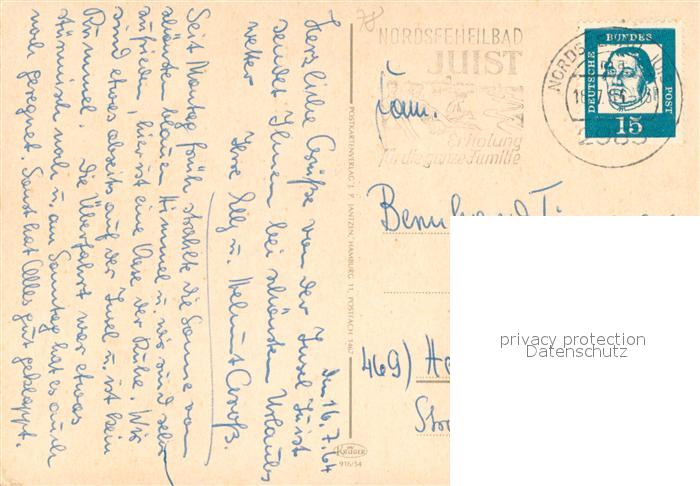 den 16.7.64
Herzliche Grüße von der Insel Juist
sendet Ihnen bei schönstem Urlaubs
wetter
Ihre Elly u. Helmut Groß.
Seit Montag früh strahlte die Sonne vom
schönsten blauen Himmel u. wir sind sehr
zufrieden, hier ist eine Oase der Ruhe. Wir
sind etwas abseits auf der Insel u. ist kein
Rummel. Die Überfahrt war etwas
stürmisch noch u. am Sonntag hat es auch
noch geregnet. Sonst hat Alles gut geklappt.
POSTKARTENVERLAG J. P. JANTZEN, HAMBURG 11, POSTFACH 1467
KRÜGER
916/54
78
NORDSEEHEILBAD
JUIST
Erholung
für die ganze Familie
DEUTSCHE BUNDESPOST
15
Fam.
Bernhard
469)
privacy protection
Datenschutz